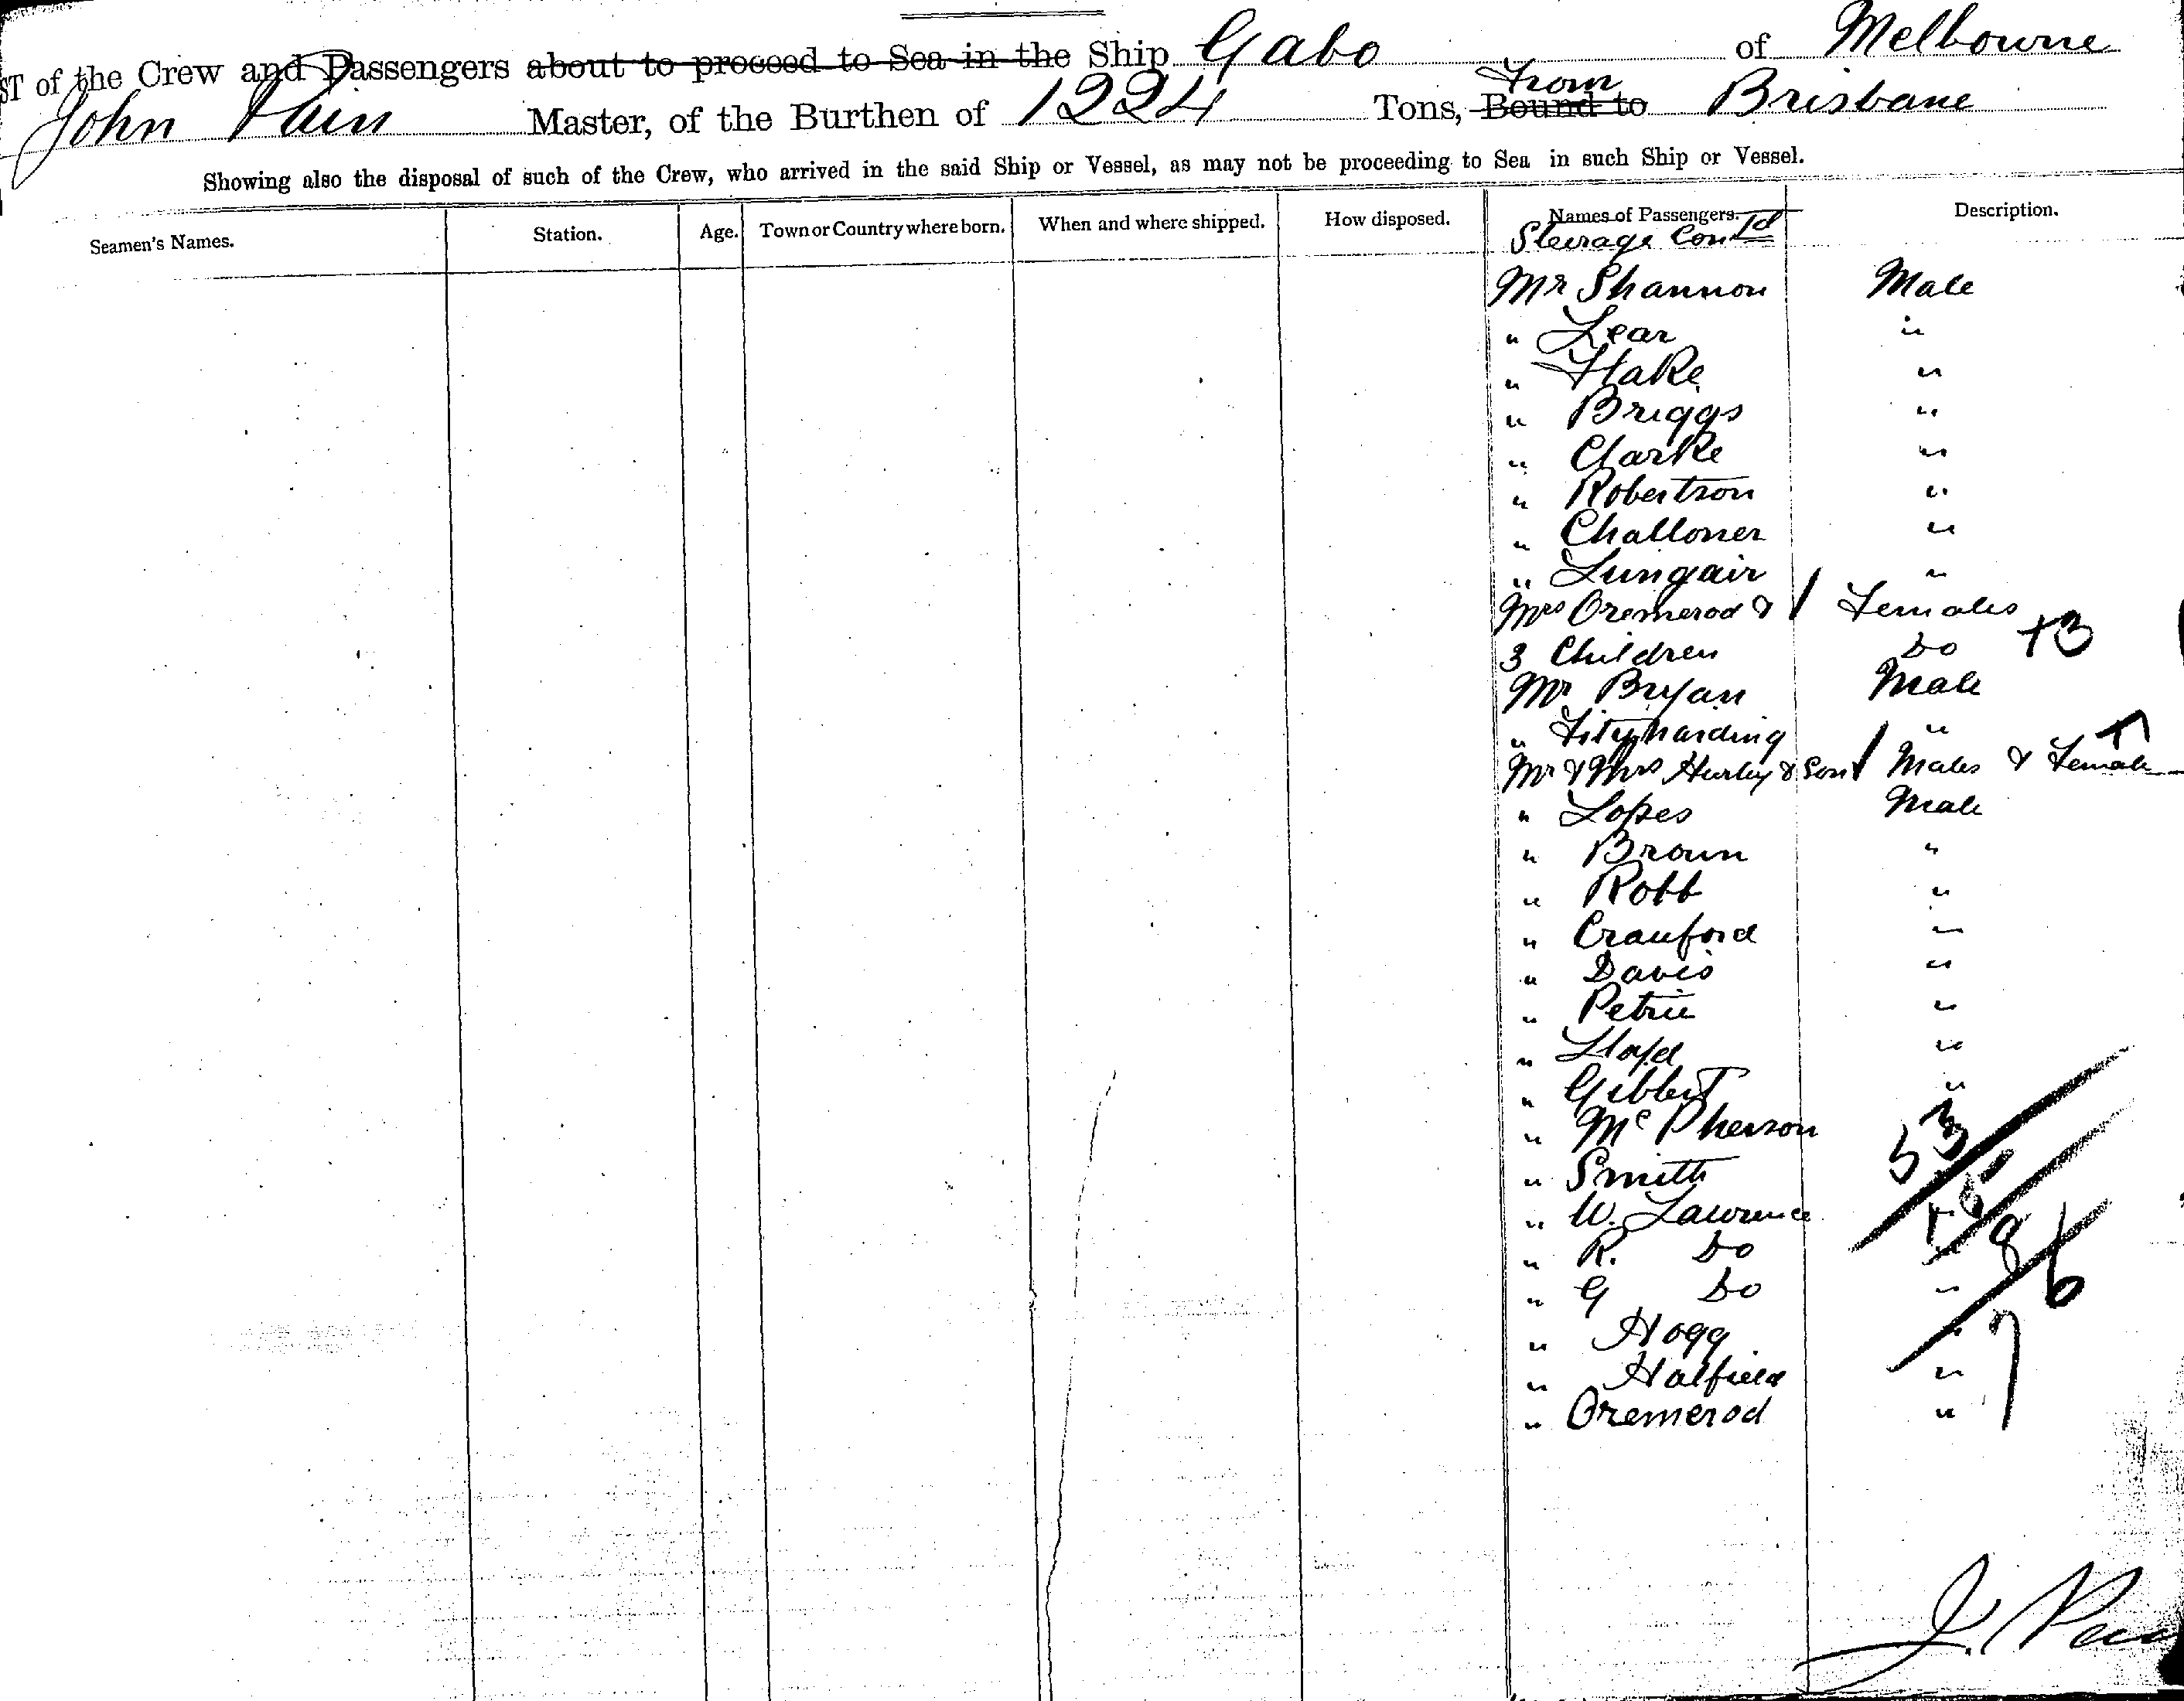 ST of the Crew and Passengers about to proceed to Sea in the Ship Gabo of Melbourne
John Pain Master, of the Burthen of 1224 Tons, Bound to From Brisbane
Showing also the disposal of such of the Crew, who arrived in the said Ship or Vessel, as may not be proceeding to Sea in such Ship or Vessel.
Seamen's Names. Station. Age. Town or Country where born. When and where shipped. How disposed. Names of Passengers. Description.
Steerage Contd
Mr Shannon Male
" Lear "
" Flake "
" Briggs "
" Clarke "
" Robertson "
" Challoner "
" Lungair "
Mrs Oremerod & 1 Females
3 Children Do +3
Mr Bryan Male
" Fitzharding "
Mr & Mrs Hurley & Son 1 Males & Female
" Lopes Male
" Broun "
" Robb "
" Crauford "
" Davis "
" Petrie "
" Lloyd "
" Gibbert "
" McPherson
" Smith
" W. Lawrence
" R. Do "
" G Do "
" Hogg "
" Halfield "
" Oremerod "
53
6
7
J. Pain